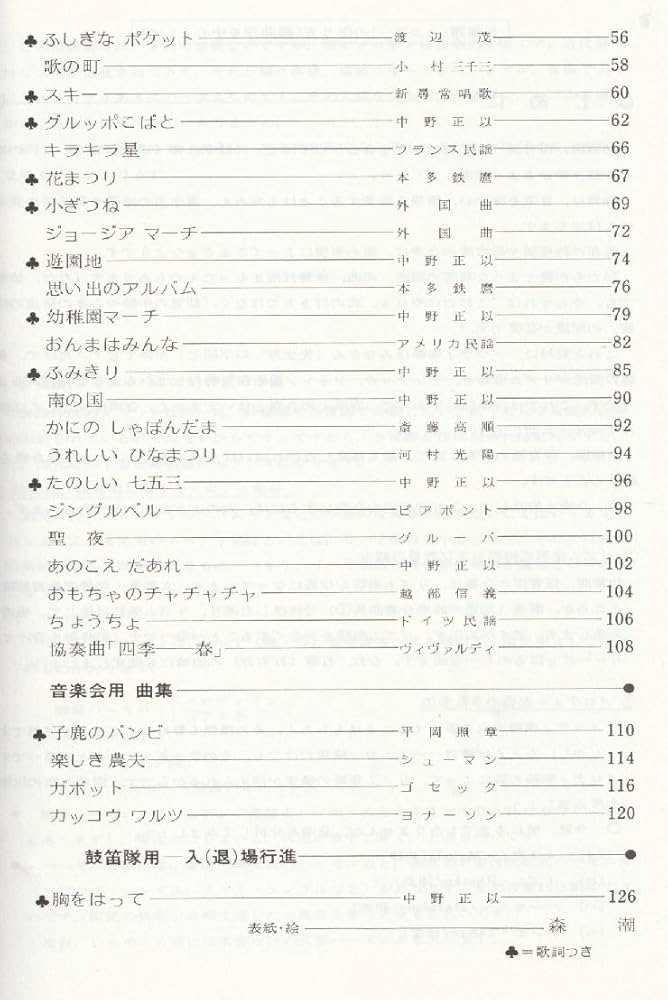 ♣ふしぎな ポケット―渡辺 茂―56
歌の町―小村三千三―58
♣スキー―新尋常唱歌―60
♣グルッポこばと―中野正以―62
キラキラ星―フランス民謡―66
♣花まつり―本多鉄麿―67
♣小ぎつね―外国曲―69
ジョージア マーチ―外国曲―72
♣遊園地―中野正以―74
思い出のアルバム―本多鉄麿―76
♣幼稚園マーチ―中野正以―79
おんまはみんな―アメリカ民謡―82
♣ふみきり―中野正以―85
南の国―中野正以―90
かにの しゃぼんだま―斎藤高順―92
うれしい ひなまつり―河村光陽―94
♣たのしい 七五三―中野正以―96
ジングルベル―ピアポント―98
聖 夜―グルーバ―100
あのこえ だあれ―中野正以―102
おもちゃのチャチャチャ―越部信義―104
ちょうちょ―ドイツ民謡―106
協奏曲「四季―春」―ヴィヴァルディ―108
音楽会用 曲集―●
♣子鹿のバンビ―平岡照章―110
楽しき農夫―シューマン―114
ガボット―ゴセック―116
カッコウ ワルツ―ヨナーソン―120
鼓笛隊用―入(退)場行進―●
♣胸をはって―中野正以―126
表紙・絵―森 潮
♣=歌詞つき